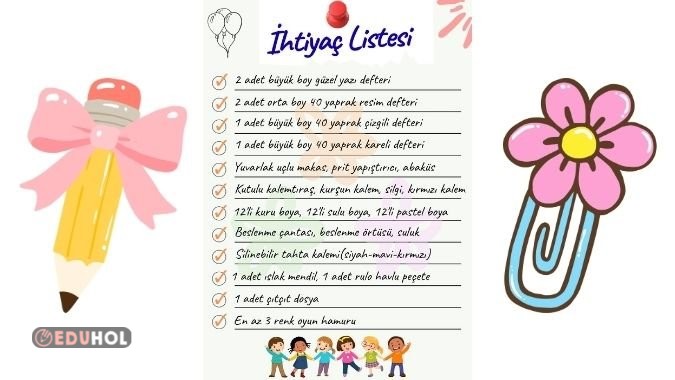 İhtiyaç Listesi
2 adet büyük boy güzel yazı defteri
2 adet orta boy 40 yaprak resim defteri
1 adet büyük boy 40 yaprak çizgili defteri
1 adet büyük boy 40 yaprak kareli defteri
Yuvarlak uçlu makas, prit yapıştırıcı, abaküs
Kutulu kalemtıraş, kurşun kalem, silgi, kırmızı kalem
12'li kuru boya, 12'li sulu boya, 12'li pastel boya
Beslenme çantası, beslenme örtüsü, suluk
Silinebilir tahta kalemi(siyah-mavi-kırmızı)
1 adet ıslak mendil, 1 adet rulo havlu peçete
1 adet çıtçıt dosya
En az 3 renk oyun hamuru
EDUHOL